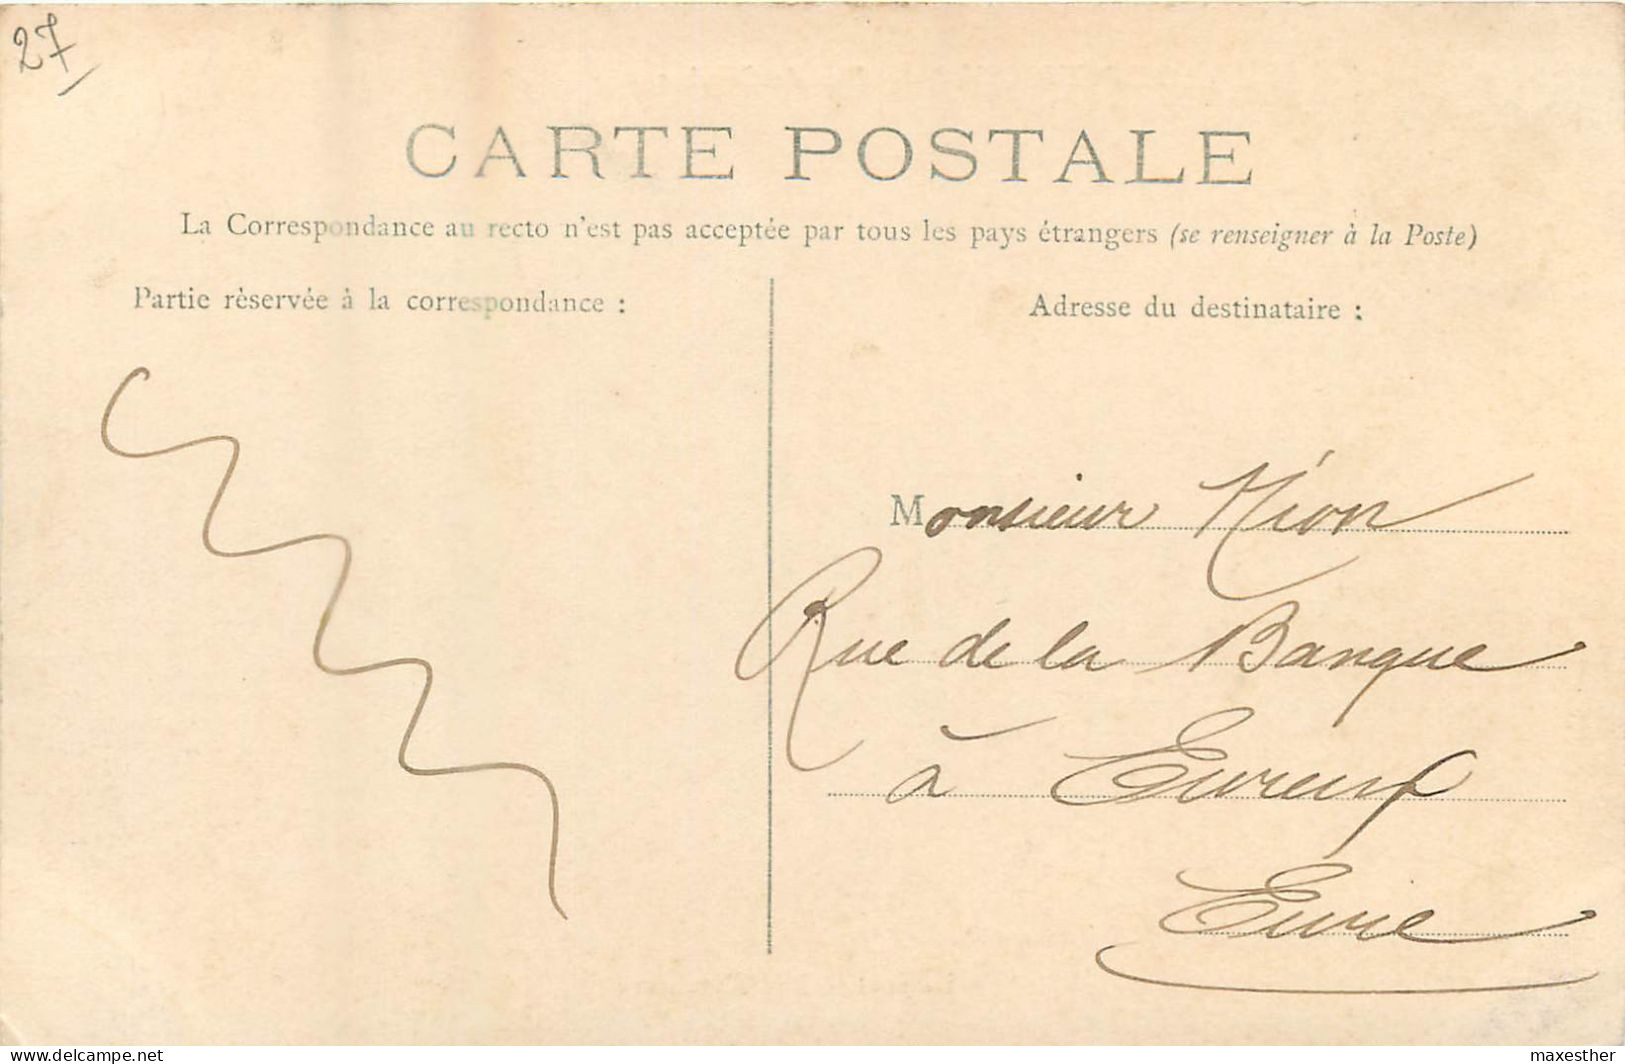 27
CARTE POSTALE
La Correspondance au recto n'est pas acceptée par tous les pays étrangers (se renseigner à la Poste)
Partie réservée à la correspondance :
Adresse du destinataire :
Monsieur Nion
Rue de la Banque
à Evreux
Eure
www.delcampe.net
maxesther